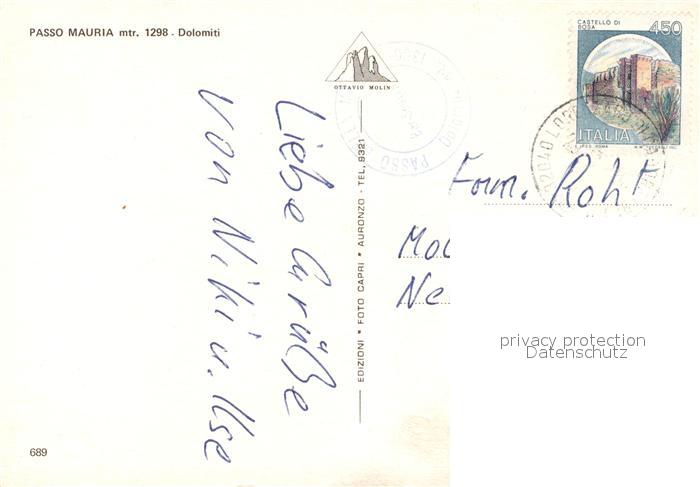 PASSO MAURIA mtr. 1298 - Dolomiti
OTTAVIO MOLIN
CASTELLO DI BOSA
450
ITALIA
I.P.Z.S. ROMA
PASSO
32040 LOR
Liebe Grüße
von Niki u. Ilse
EDIZIONI * FOTO CAPRI * AURONZO - TEL. 9321
Fam. Roht
privacy protection
Datenschutz
689